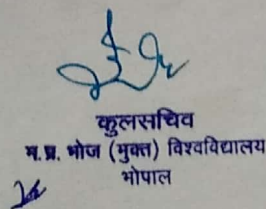 कुलसचिव
म.प्र. भोज (मुक्त) विश्वविद्यालय
भोपाल